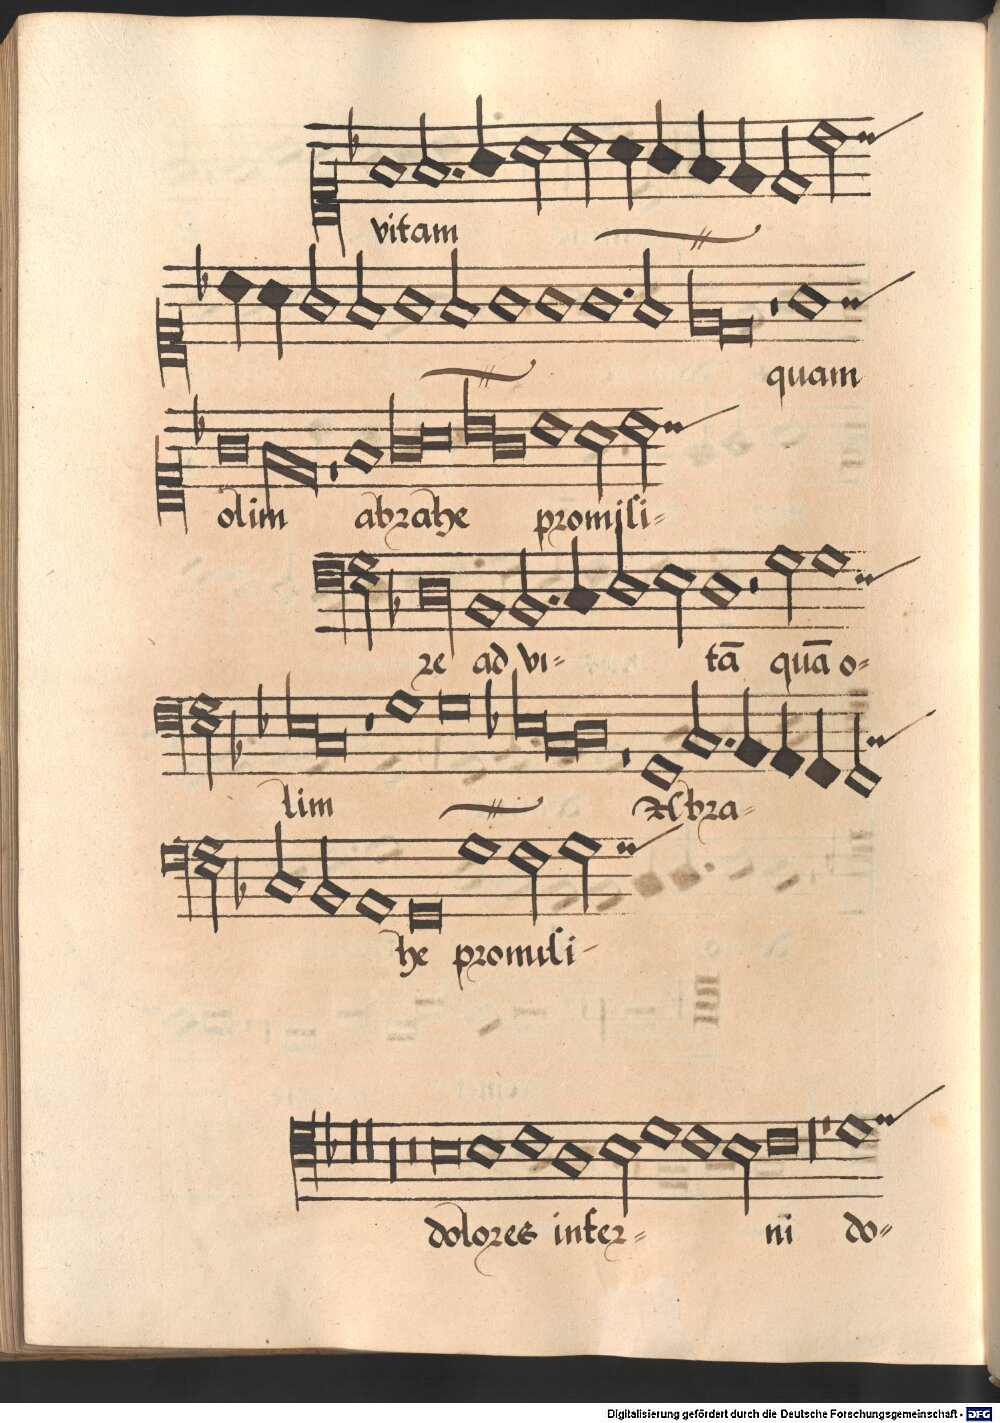 vitam
quam
olim abrahe promisi-
re ad vi- tā quā o-
lim Abra-
he promisi-
dolores infer- ni do-
Digitalisierung gefördert durch die Deutsche Forschungsgemeinschaft - DFG